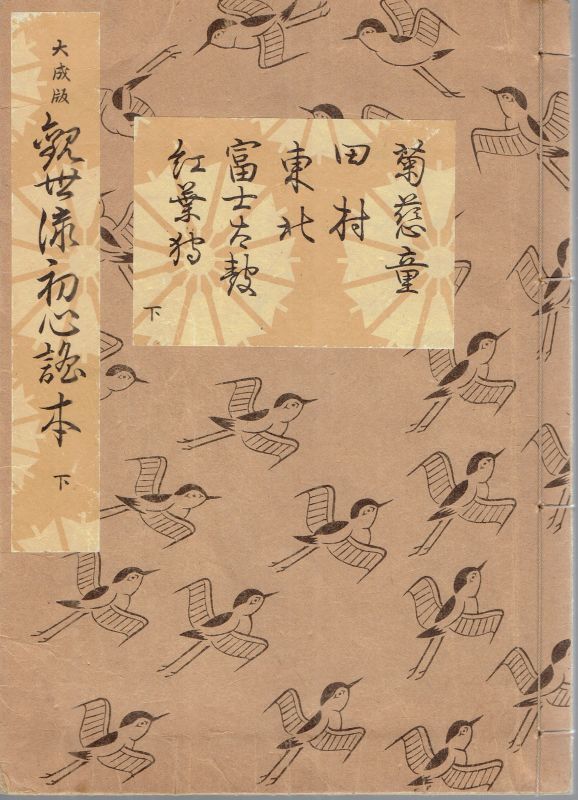 大成版
觀世流初心謠本
下
菊慈童
田村
東北
富士太鼓
紅葉狩
下